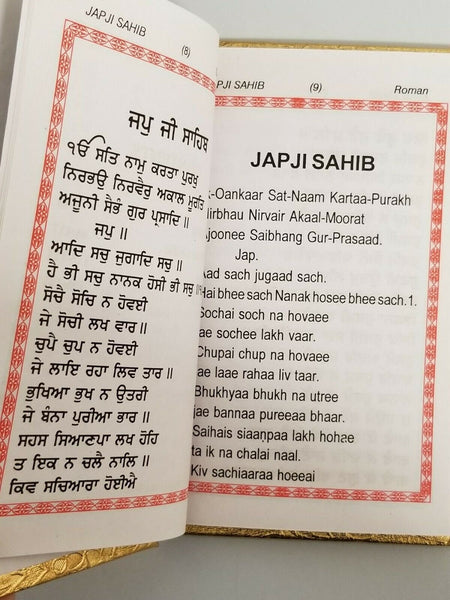 JAPJI SAHIB (8)
ਜਪੁ ਜੀ ਸਾਹਿਬ
ੴ ਸਤਿ ਨਾਮੁ ਕਰਤਾ ਪੁਰਖੁ
ਨਿਰਭਉ ਨਿਰਵੈਰੁ ਅਕਾਲ ਮੂਰਤਿ
ਅਜੂਨੀ ਸੈਭੰ ਗੁਰ ਪ੍ਰਸਾਦਿ ॥
ਜਪੁ ॥
ਆਦਿ ਸਚੁ ਜੁਗਾਦਿ ਸਚੁ ॥
ਹੈ ਭੀ ਸਚੁ ਨਾਨਕ ਹੋਸੀ ਭੀ ਸਚੁ
ਸੋਚੈ ਸੋਚਿ ਨ ਹੋਵਈ
ਜੇ ਸੋਚੀ ਲਖ ਵਾਰ ॥
ਚੁਪੈ ਚੁਪ ਨ ਹੋਵਈ
ਜੇ ਲਾਇ ਰਹਾ ਲਿਵ ਤਾਰ ॥
ਭੁਖਿਆ ਭੁਖ ਨ ਉਤਰੀ
ਜੇ ਬੰਨਾ ਪੁਰੀਆ ਭਾਰ ॥
ਸਹਸ ਸਿਆਣਪਾ ਲਖ ਹੋਹਿ
ਤ ਇਕ ਨ ਚਲੈ ਨਾਲਿ ॥
ਕਿਵ ਸਚਿਆਰਾ ਹੋਈਐ
PJI SAHIB (9) Roman
JAPJI SAHIB
k-Oankaar Sat-Naam Kartaa-Purakh
Nirbhau Nirvair Akaal-Moorat
Ajoonee Saibhang Gur-Prasaad.
Jap.
Aad sach jugaad sach.
Hai bhee sach Nanak hosee bhee sach.1.
Sochai soch na hovaee
jae sochee lakh vaar.
Chupai chup na hovaee
jae laae rahaa liv taar.
Bhukhyaa bhukh na utree
jae bannaa pureeaa bhaar.
Saihais siaaṇpaa lakh hohae
ta ik na chalai naal.
Kiv sachiaaraa hoeeai